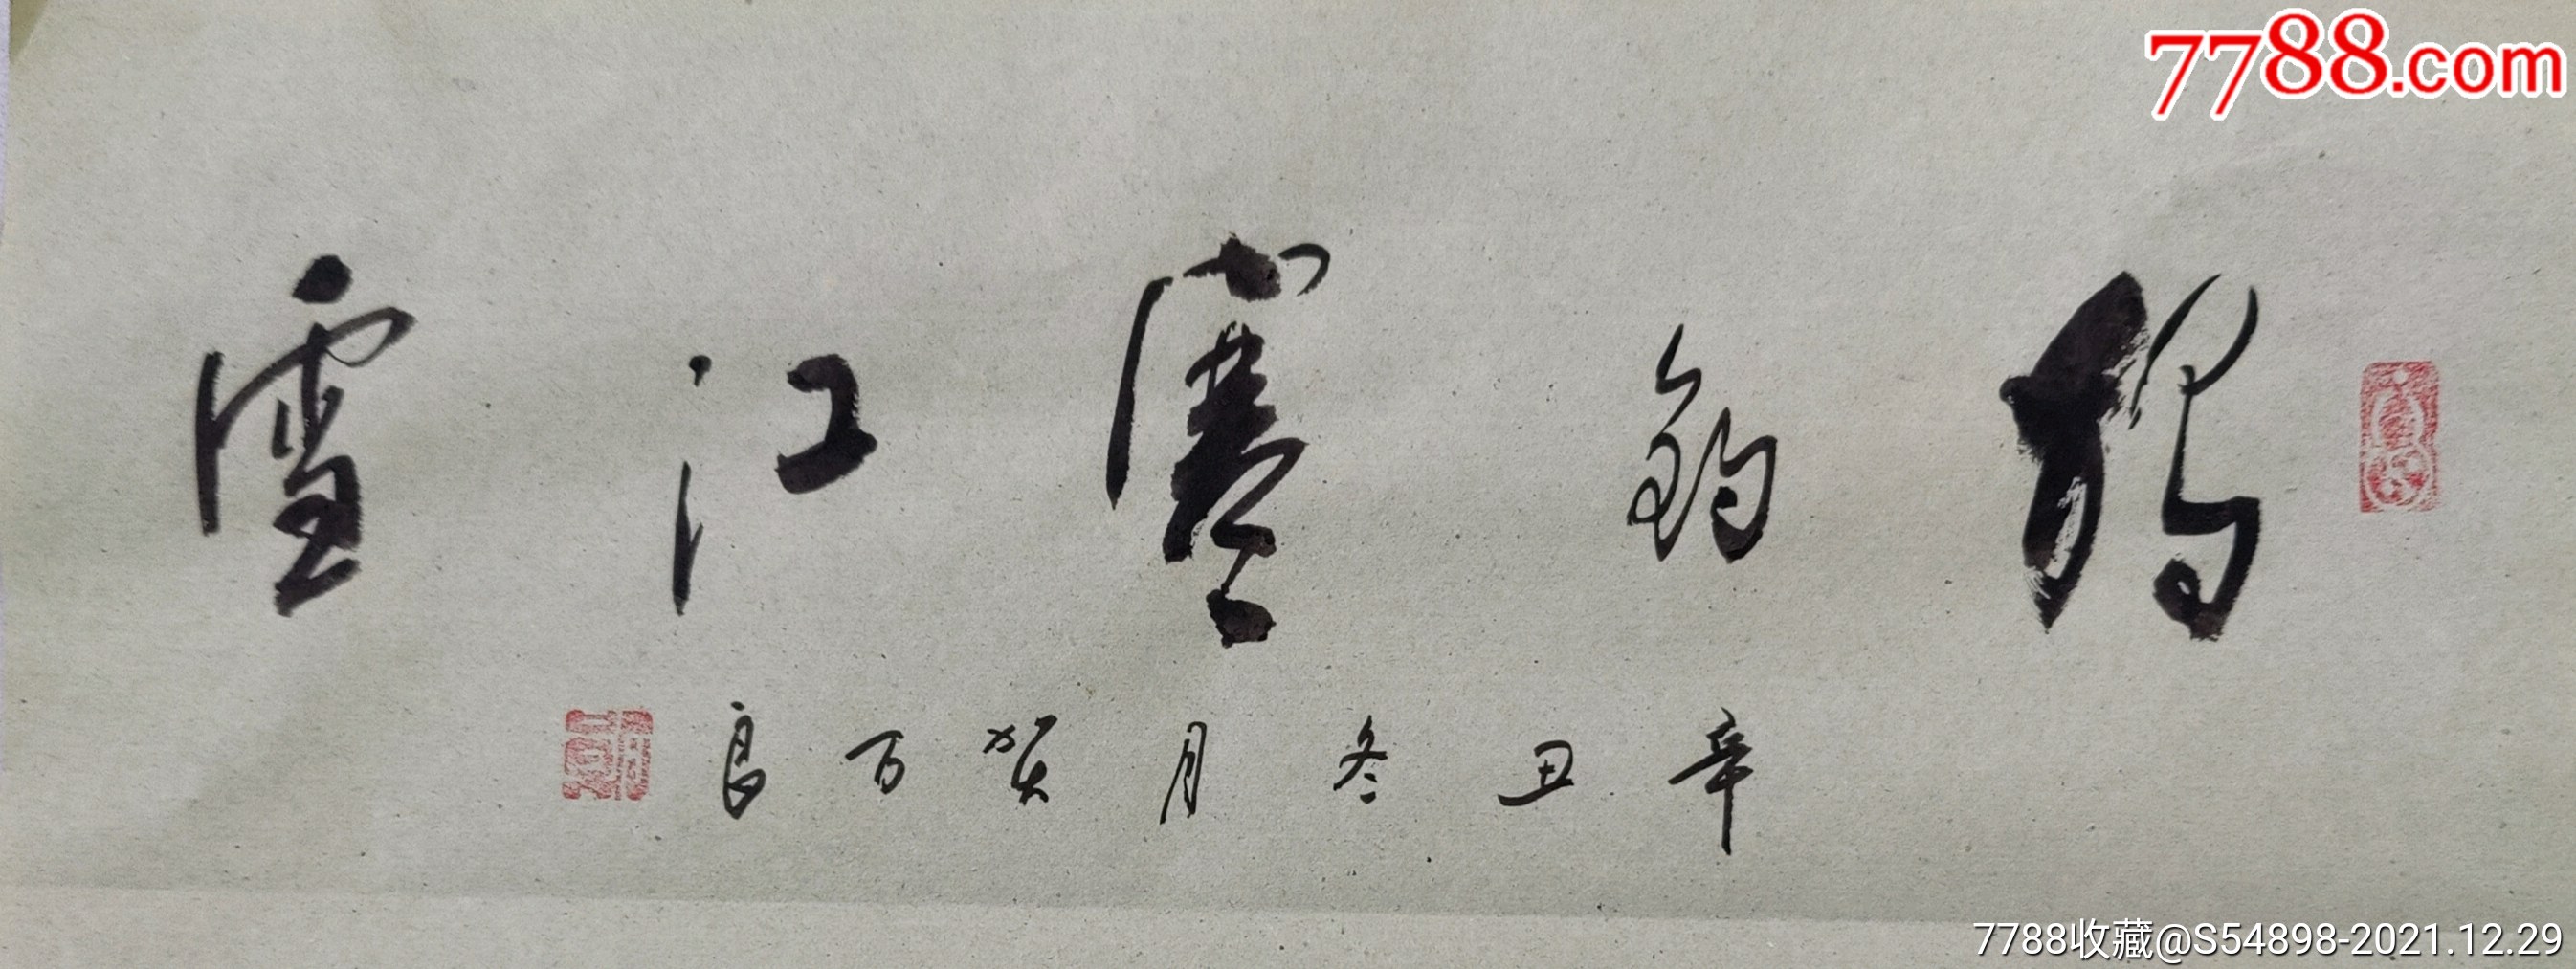 7788.com
獨釣寒江雪
辛丑冬月賀百良
7788收藏@S54898-2021.12.29